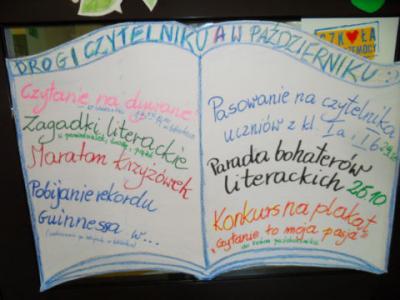 DROGI CZYTELNIKU A W PAŹDZIERNIKU :)
Czytanie na dywanie
Zagadki literackie
Maraton krzyżówek
Pobijanie rekordu
Guinnessa w...
Pasowanie na czytelnika
uczniów z kl Ia i Ib
Parada bohaterów
literackich 25.10
Konkurs na plakat
"Czytanie, to moja pasja"
do końca października
SZKOŁA